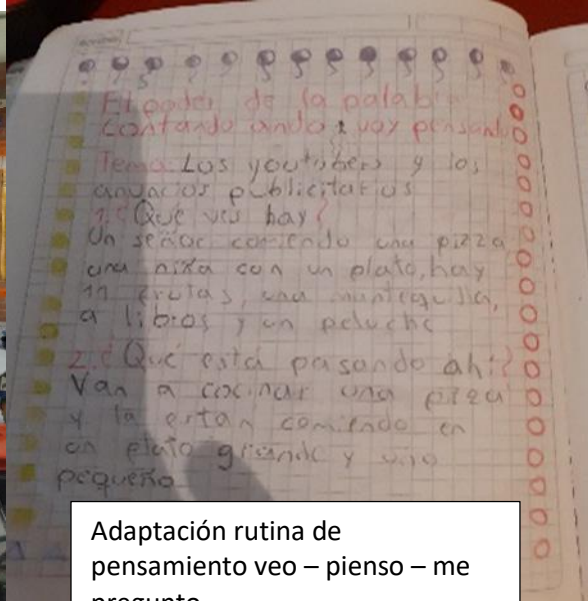 El poder de la palabra
contando ando y voy pensando
Tema: Los youtubers y los
anuncios publicitarios
1. ¿Qué ves hay?
Un señor comiendo una pizza
una niña con un plato, hay
11 frutas, una mantequilla,
a libros y un peluche
2. ¿Qué está pasando ahí?
Van a cocinar una pizza
y la estan comiendo en
un plato grande y uno
pequeño
Adaptación rutina de
pensamiento veo – pienso – me
pregunto